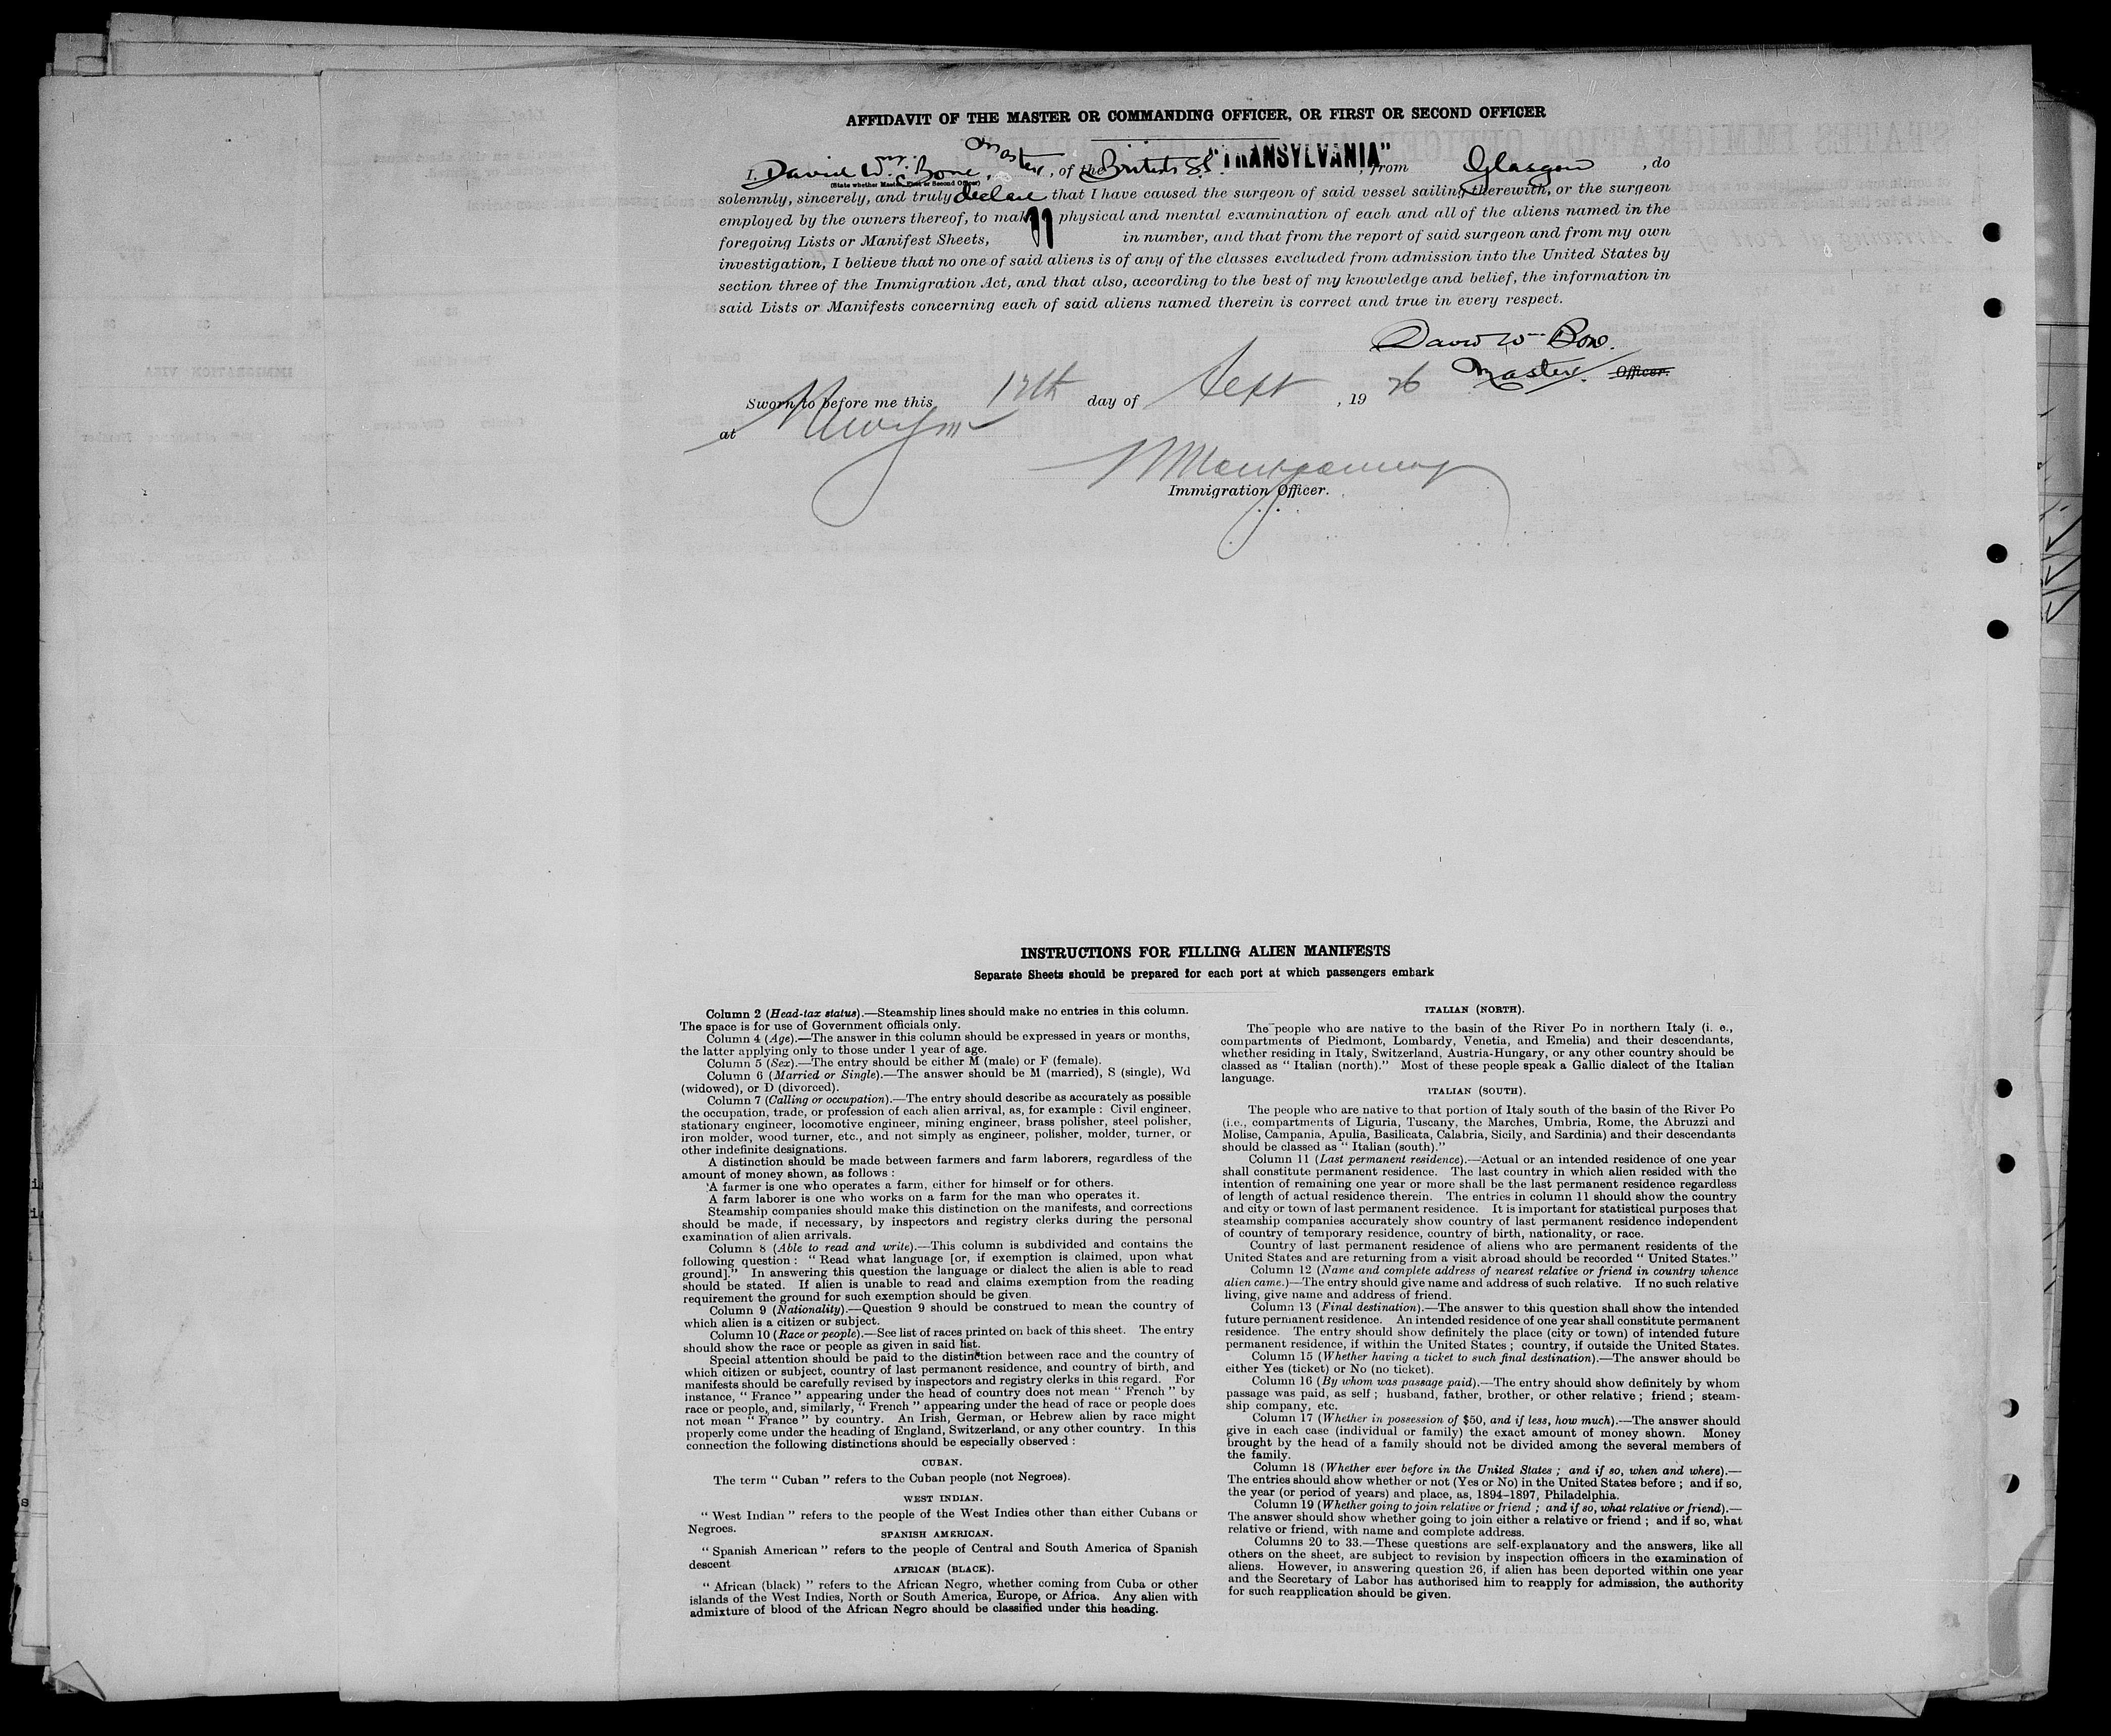 AFFIDAVIT OF THE MASTER OR COMMANDING OFFICER, OR FIRST OR SECOND OFFICER
I, David Wm. Bone, Master, of the British S.S. "TRANSYLVANIA", from Glasgow, do
(State whether Master, First or Second Officer)
solemnly, sincerely, and truly declare that I have caused the surgeon of said vessel sailing therewith, or the surgeon
employed by the owners thereof, to make physical and mental examination of each and all of the aliens named in the
foregoing Lists or Manifest Sheets, in number, and that from the report of said surgeon and from my own
investigation, I believe that no one of said aliens is of any of the classes excluded from admission into the United States by
section three of the Immigration Act, and that also, according to the best of my knowledge and belief, the information in
said Lists or Manifests concerning each of said aliens named therein is correct and true in every respect.
David Wm Bone.
Master. Officer.
Sworn to before me this day of Sept, 19 26
at
Montgomery
Immigration Officer.
INSTRUCTIONS FOR FILLING ALIEN MANIFESTS
Separate Sheets should be prepared for each port at which passengers embark
Column 2 (Head-tax status).—Steamship lines should make no entries in this column.
The space is for use of Government officials only.
Column 4 (Age).—The answer in this column should be expressed in years or months,
the latter applying only to those under 1 year of age.
Column 5 (Sex).—The entry should be either M (male) or F (female).
Column 6 (Married or Single).—The answer should be M (married), S (single), Wd
(widowed), or D (divorced).
Column 7 (Calling or occupation).—The entry should describe as accurately as possible
the occupation, trade, or profession of each alien arrival, as, for example : Civil engineer,
stationary engineer, locomotive engineer, mining engineer, brass polisher, steel polisher,
iron molder, wood turner, etc., and not simply as engineer, polisher, molder, turner, or
other indefinite designations.
A distinction should be made between farmers and farm laborers, regardless of the
amount of money shown, as follows :
A farmer is one who operates a farm, either for himself or for others.
A farm laborer is one who works on a farm for the man who operates it.
Steamship companies should make this distinction on the manifests, and corrections
should be made, if necessary, by inspectors and registry clerks during the personal
examination of alien arrivals.
Column 8 (Able to read and write).—This column is subdivided and contains the
following question : " Read what language [or, if exemption is claimed, upon what
ground]." In answering this question the language or dialect the alien is able to read
should be stated. If alien is unable to read and claims exemption from the reading
requirement the ground for such exemption should be given.
Column 9 (Nationality).—Question 9 should be construed to mean the country of
which alien is a citizen or subject.
Column 10 (Race or people).—See list of races printed on back of this sheet. The entry
should show the race or people as given in said list.
Special attention should be paid to the distinction between race and the country of
which citizen or subject, country of last permanent residence, and country of birth, and
manifests should be carefully revised by inspectors and registry clerks in this regard. For
instance, " France " appearing under the head of country does not mean " French " by
race or people, and, similarly, " French " appearing under the head of race or people does
not mean " France " by country. An Irish, German, or Hebrew alien by race might
properly come under the heading of England, Switzerland, or any other country. In this
connection the following distinctions should be especially observed :
CUBAN.
The term " Cuban " refers to the Cuban people (not Negroes).
WEST INDIAN.
" West Indian " refers to the people of the West Indies other than either Cubans or
Negroes.
SPANISH AMERICAN.
" Spanish American " refers to the people of Central and South America of Spanish
descent
AFRICAN (BLACK).
" African (black) " refers to the African Negro, whether coming from Cuba or other
islands of the West Indies, North or South America, Europe, or Africa. Any alien with
admixture of blood of the African Negro should be classified under this heading.
ITALIAN (NORTH).
The people who are native to the basin of the River Po in northern Italy (i. e.,
compartments of Piedmont, Lombardy, Venetia, and Emelia) and their descendants,
whether residing in Italy, Switzerland, Austria-Hungary, or any other country should be
classed as " Italian (north)." Most of these people speak a Gallic dialect of the Italian
language.
ITALIAN (SOUTH).
The people who are native to that portion of Italy south of the basin of the River Po
(i.e., compartments of Liguria, Tuscany, the Marches, Umbria, Rome, the Abruzzi and
Molise, Campania, Apulia, Basilicata, Calabria, Sicily, and Sardinia) and their descendants
should be classed as " Italian (south)."
Column 11 (Last permanent residence).—Actual or an intended residence of one year
shall constitute permanent residence. The last country in which alien resided with the
intention of remaining one year or more shall be the last permanent residence regardless
of length of actual residence therein. The entries in column 11 should show the country
and city or town of last permanent residence. It is important for statistical purposes that
steamship companies accurately show country of last permanent residence independent
of country of temporary residence, country of birth, nationality, or race.
Country of last permanent residence of aliens who are permanent residents of the
United States and are returning from a visit abroad should be recorded " United States."
Column 12 (Name and complete address of nearest relative or friend in country whence
alien came.)—The entry should give name and address of such relative. If no such relative
living, give name and address of friend.
Column 13 (Final destination).—The answer to this question shall show the intended
future permanent residence. An intended residence of one year shall constitute permanent
residence. The entry should show definitely the place (city or town) of intended future
permanent residence, if within the United States ; country, if outside the United States.
Column 15 (Whether having a ticket to such final destination).—The answer should be
either Yes (ticket) or No (no ticket).
Column 16 (By whom was passage paid).—The entry should show definitely by whom
passage was paid, as self ; husband, father, brother, or other relative ; friend ; steam-
ship company, etc.
Column 17 (Whether in possession of $50, and if less, how much).—The answer should
give in each case (individual or family) the exact amount of money shown. Money
brought by the head of a family should not be divided among the several members of
the family.
Column 18 (Whether ever before in the United States ; and if so, when and where).—
The entries should show whether or not (Yes or No) in the United States before ; and if so,
the year (or period of years) and place, as, 1894-1897, Philadelphia.
Column 19 (Whether going to join relative or friend ; and if so, what relative or friend).—
The answer should show whether going to join either a relative or friend ; and if so, what
relative or friend, with name and complete address.
Columns 20 to 33.—These questions are self-explanatory and the answers, like all
others on the sheet, are subject to revision by inspection officers in the examination of
aliens. However, in answering question 26, if alien has been deported within one year
and the Secretary of Labor has authorised him to reapply for admission, the authority
for such reapplication should be given.